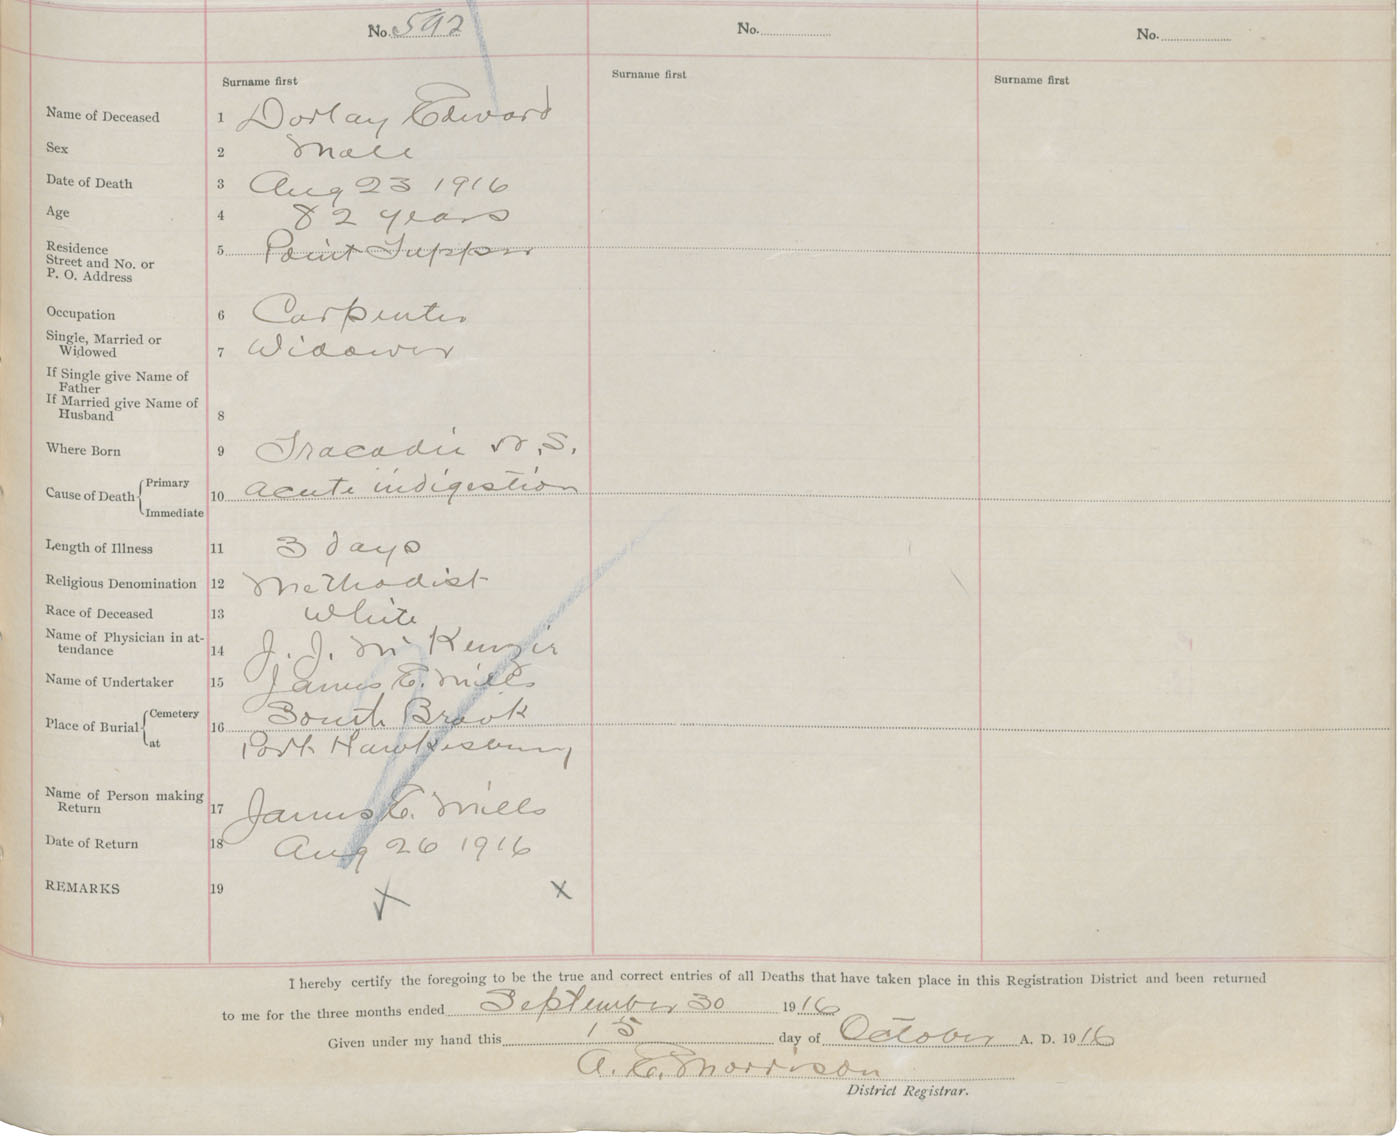 No. 592 No. No.
Surname first Surname first Surname first
Name of Deceased 1 Dorlay Edward
Sex 2 Male
Date of Death 3 Aug 23 1916
Age 4 82 years
Residence 5 Point Tupper
Street and No. or
P. O. Address
Occupation 6 Carpenter
Single, Married or
Widowed 7 Widower
If Single give Name of
Father
If Married give Name of
Husband 8
Where Born 9 Tracadie N.S.
Cause of Death Primary 10 acute indigestion
Immediate
Length of Illness 11 3 days
Religious Denomination 12 Methodist
Race of Deceased 13 White
Name of Physician in at-
tendance 14 J. J. McKenzie
Name of Undertaker 15 James E. Mills
Place of Burial Cemetery 16 South Brook
at Port Hawkesbury
Name of Person making
Return 17 James E. Mills
Date of Return 18 Aug 26 1916
REMARKS 19 x
I hereby certify the foregoing to be the true and correct entries of all Deaths that have taken place in this Registration District and been returned
to me for the three months ended September 30 1916
Given under my hand this 15 day of October A. D. 1916
A. E. Morrison
District Registrar.